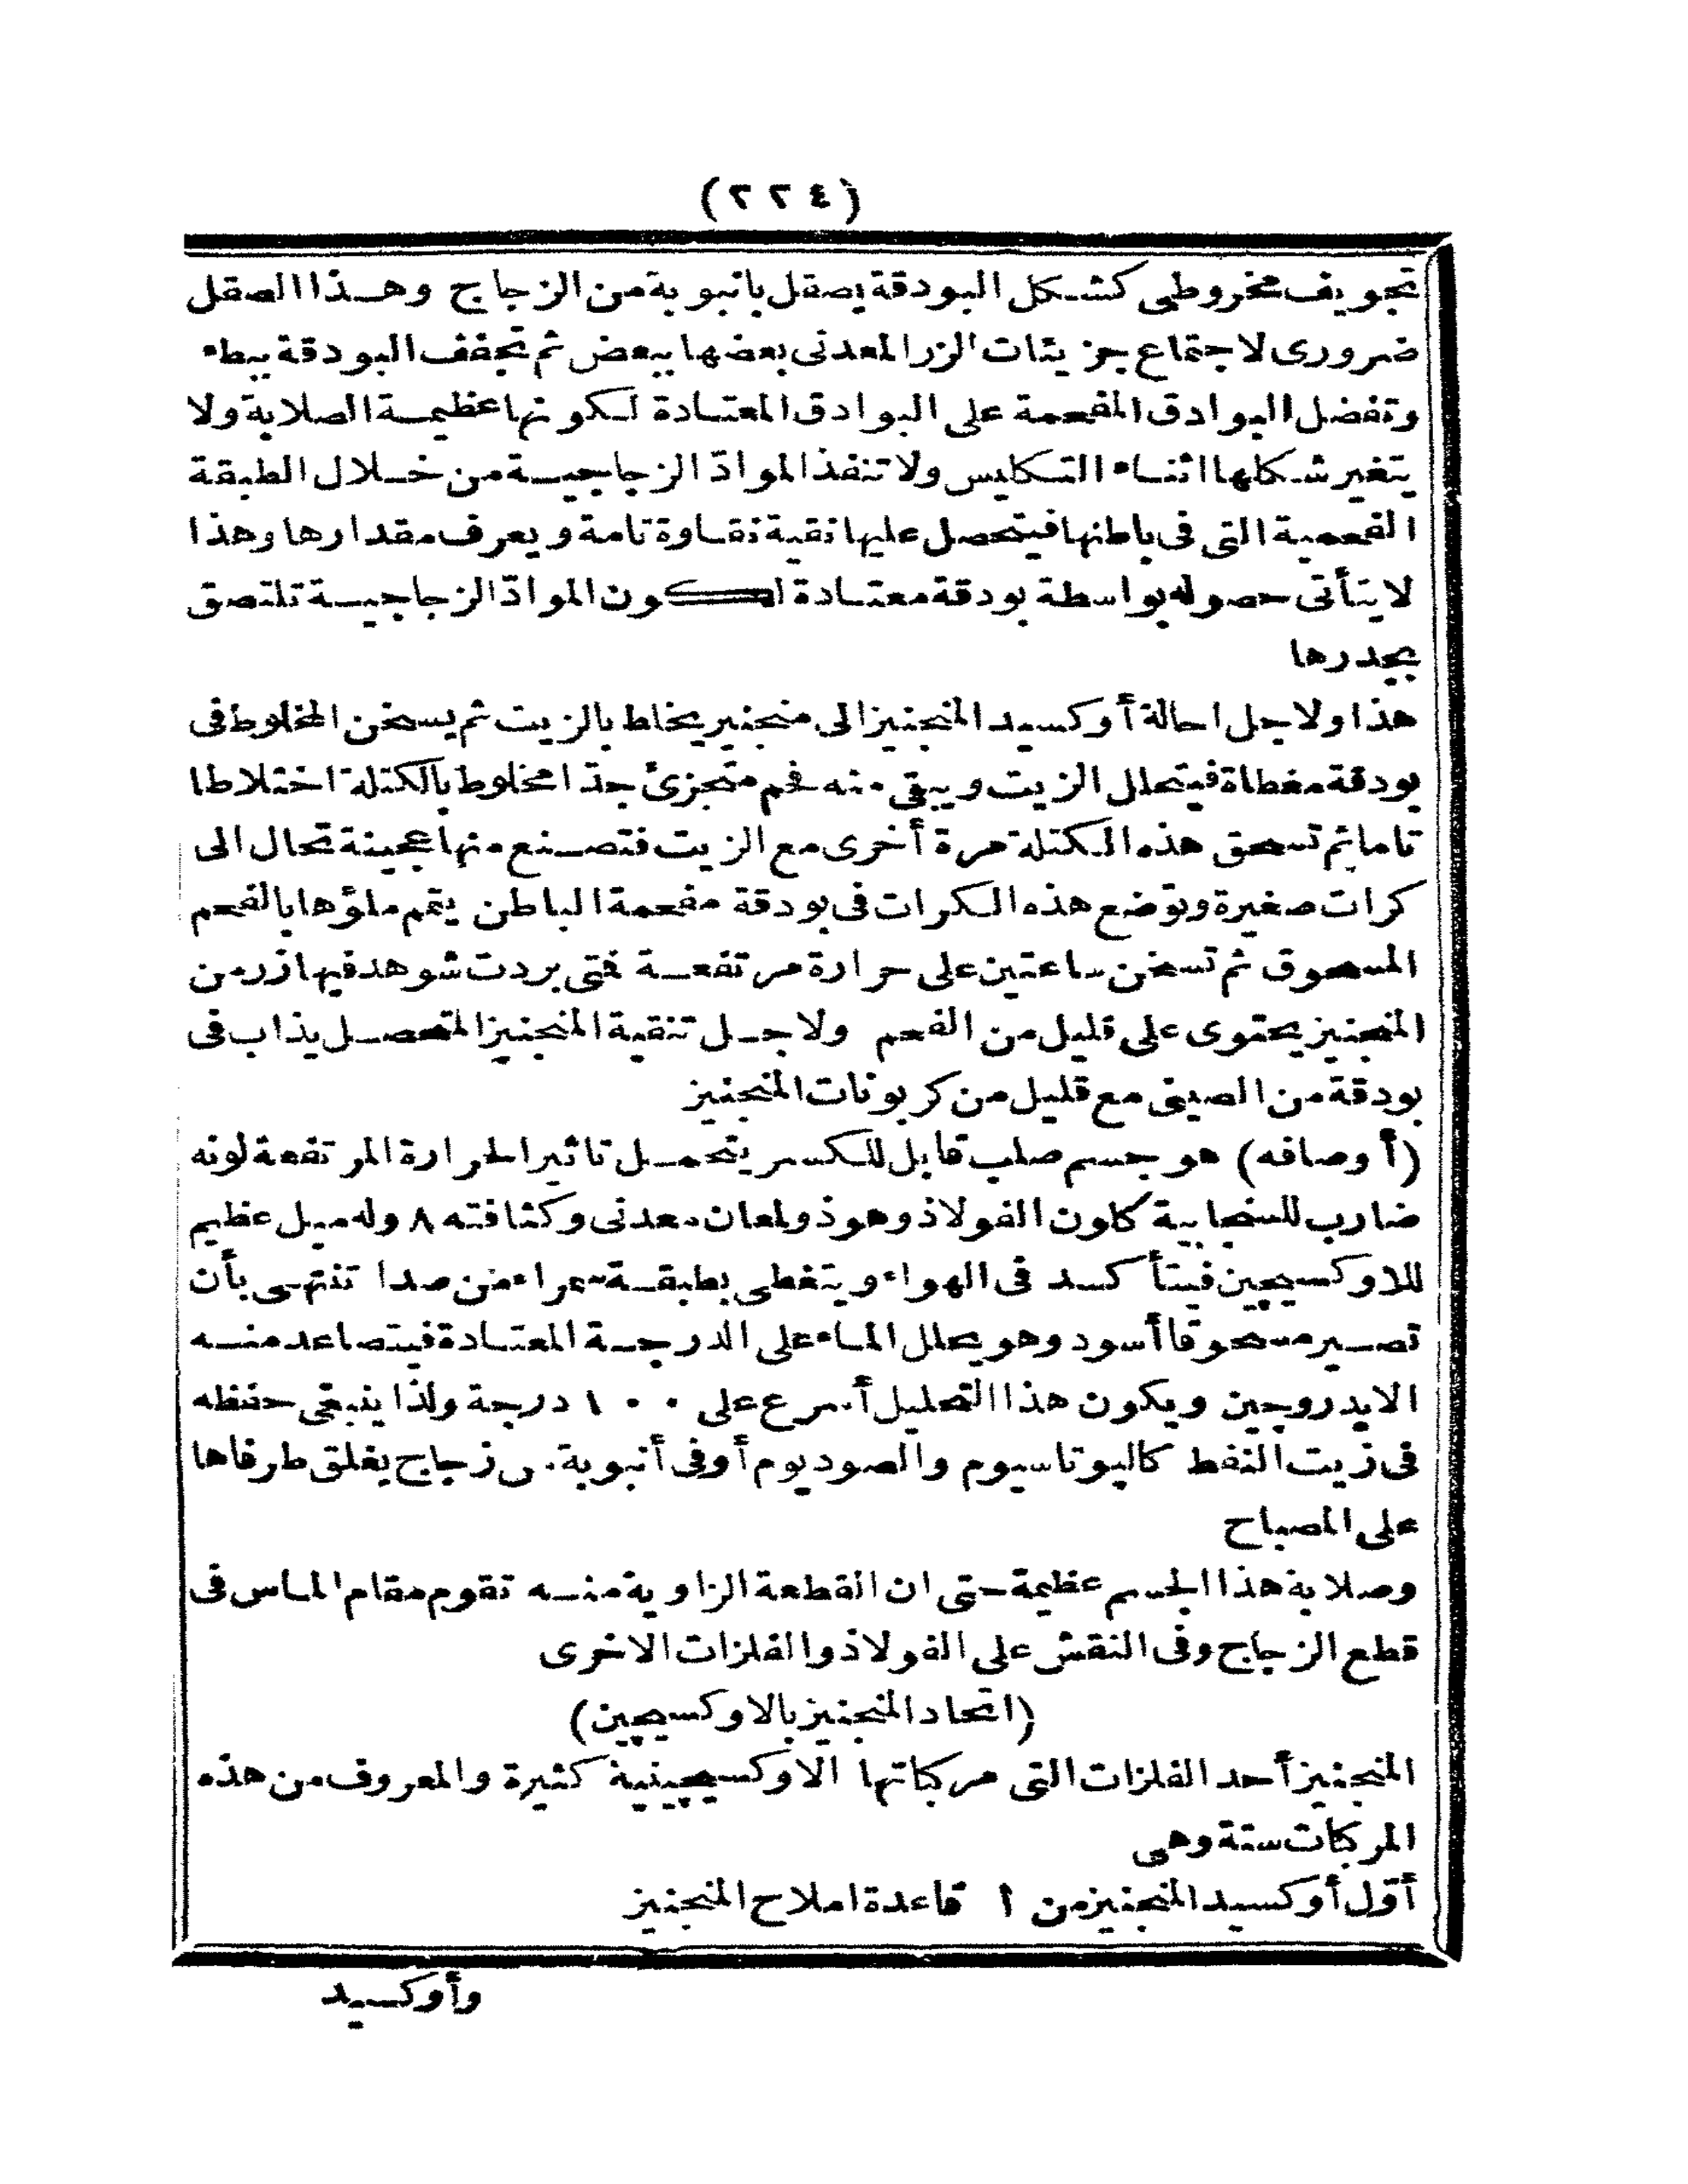 (٢٢٤)
تجويف مخروطى كشكل البودقة يصقل بانبوبة من الزجاج وهذا الصقل
ضرورى لاجتماع جزيئات الزر المعدنى بعضها ببعض ثم تجفف البودقة ببطء
وتفضل البوادق المفحمة على البوادق المعتادة لكونها عظيمة الصلابة ولا
يتغير شكلها اثناء التكليس ولا تنفذ الموادّ الزجاجية من خلال الطبقة
الفحمية التى فى باطنها فيتحصل عليها نقية نقاوة تامة ويعرف مقدارها وهذا
لا يتأتى حصوله بواسطة بودقة معتادة لكون الموادّ الزجاجية تلتصق
بجدرها
هذا ولاجل احالة أوكسيد المنجنيز الى منجنيز يخلط بالزيت ثم يسخن المخلوط فى
بودقة مغطاة فيتحلل الزيت ويبقى منه فحم متجزئ جدّا مخلوط بالكتلة اختلاطا
تاما ثم تسحق هذه الكتلة مرة أخرى مع الزيت فتصنع منها عجينة تحال الى
كرات صغيرة وتوضع هذه الكرات فى بودقة مفحمة الباطن يتمم ملؤها بالفحم
المسحوق ثم تسخن ساعتين على حرارة مرتفعة فتى بردت شوهد فيها زر من
المنجنيز يحتوى على قليل من الفحم ولاجل تنقية المنجنيز المتحصل يذاب فى
بودقة من الصينى مع قليل من كربونات المنجنيز
(أوصافه) هو جسم صلب قابل للكسر يتحمل تاثير الحرارة المرتفعة لونه
ضارب للسنجابية كلون الفولاذ وهو ذو لمعان معدنى وكثافته ٨ وله ميل عظيم
للاوكسيجين فيتأكسد فى الهواء ويتغطى بطبقة سمراء من صدا تنتهى بأن
تصير مسحوقا أسود وهو يحلل الماء على الدرجة المعتادة فيتصاعد منه
الايدروجين ويكون هذا التحليل أسرع على ١٠٠ درجة ولذا ينبغى حفظه
فى زيت النفط كالپوتاسيوم والصوديوم أوفى أنبوبة من زجاج يغلق طرفاها
على المصباح
وصلابة هذا الجسم عظيمة حتى ان القطعة الزاوية منه تقوم مقام الماس فى
قطع الزجاج وفى النقش على الفولاذ والفلزات الاخرى
(اتحاد المنجنيز بالاوكسيجين)
المنجنيز أحد الفلزات التى مركباتها الاوكسيجينية كثيرة والمعروف من هذه
المركبات ستة وهى
أوّل أوكسيد المنجنيز من ا قاعدة املاح المنجنيز
وأوكسيد